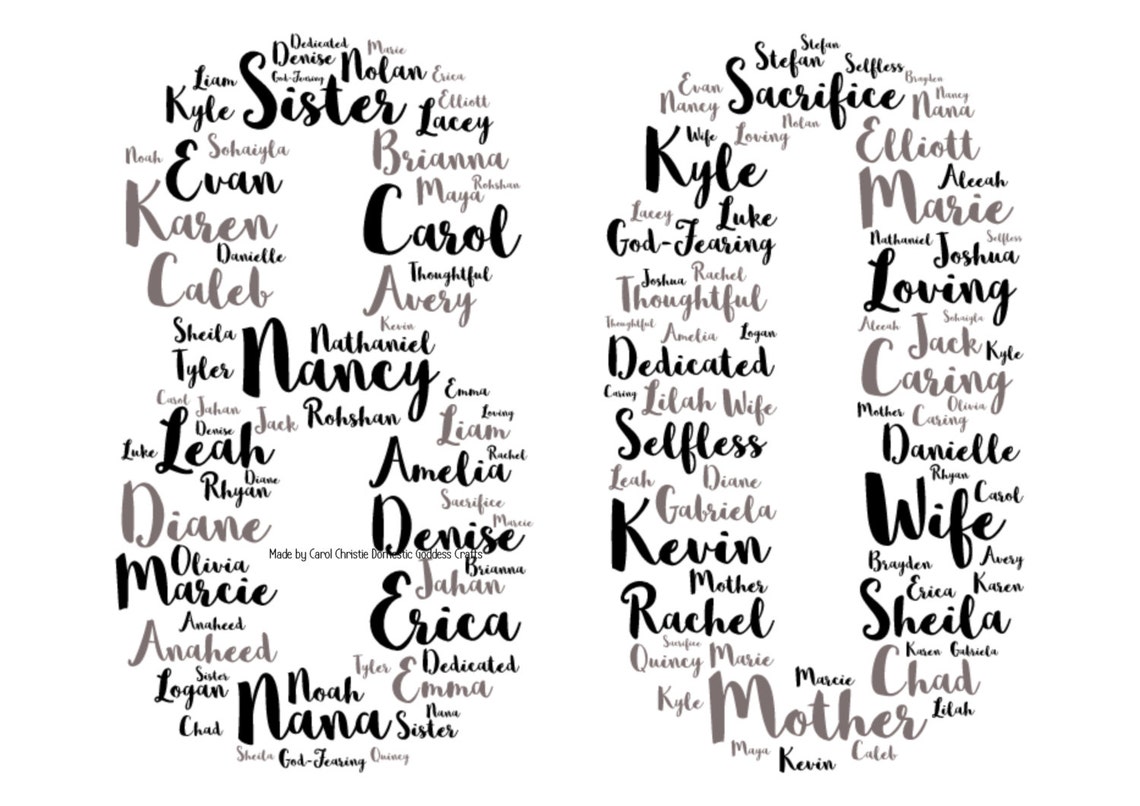 Dedicated
Denise Marie
God-Fearing Nolan Erica
Liam Sister
Kyle Elliott
Lacey
Noah Sohaiyla Brianna
Evan
Karen Maya Rohshan
Carol
Danielle
Caleb Thoughtful
Avery
Kevin
Sheila Nathaniel
Tyler Nancy
Emma
Carol Jahan Jack Rohshan Loving
Denise Liam
Luke Leah Rachel
Amelia
Diane
Rhyan Sacrifice
Diane Marcie
Denise
Made by Carol Christie Domestic Goddess Crafts
Olivia Brianna
Marcie Jahan
Anaheed Erica
Anaheed
Tyler Dedicated
Sister Emma
Logan Noah
Nana Nana
Chad Sister
Sheila God-Fearing Quincy
Stefan
Stefan Selfless
Evan Sacrifice Brayden
Nancy Nancy
Nana
Nolan
Wife Loving Elliott
Kyle
Aleeah
Marie
Lacey Luke
God-Fearing Nathaniel Selfless
Joshua
Joshua Rachel Loving
Thoughtful
Thoughtful Amelia Logan Aleeah Sohaiyla
Jack Kyle
Dedicated Caring
Caring Lilah Wife Olivia
Mother Caring
Selfless Danielle
Leah Diane Rhyan
Gabriela Wife Carol
Kevin
Brayden Avery
Mother Erica Karen
Rachel Sheila
Sacrifice Karen Gabriela
Quincy Marie Chad
Marcie
Kyle Mother Lilah
Maya Kevin Caleb